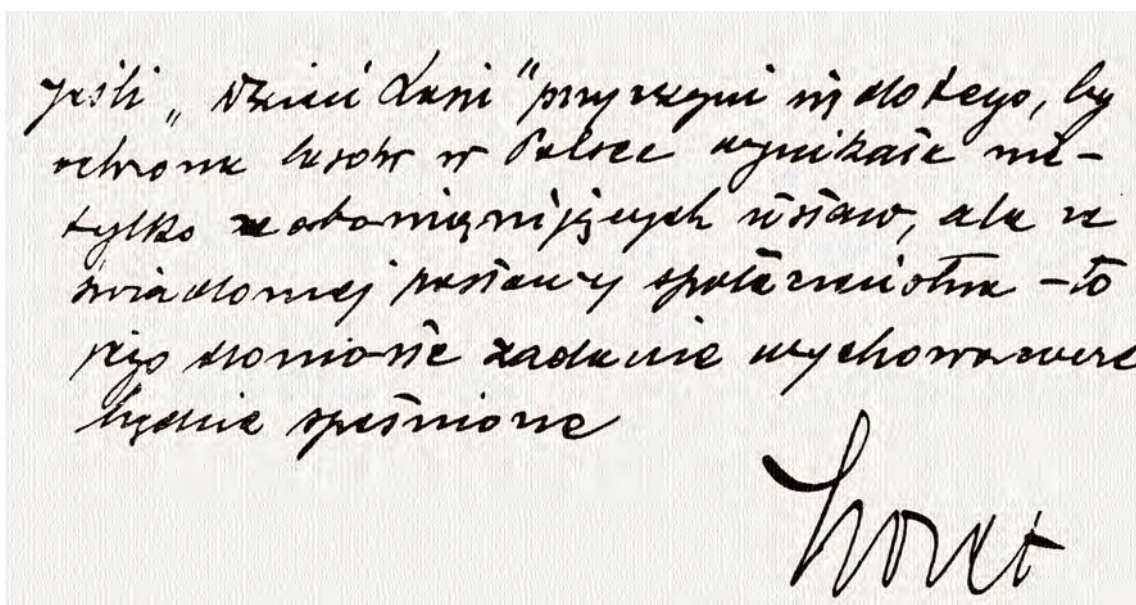 Jeśli „Dzień Lasu” przyczyni się do tego, by
ochrona lasów w Polsce wynikała nie-
tylko z obowiązujących ustaw, ale z
świadomej postawy społeczeństwa – to
jego doniosłe zadanie wychowawcze
będzie spełnione